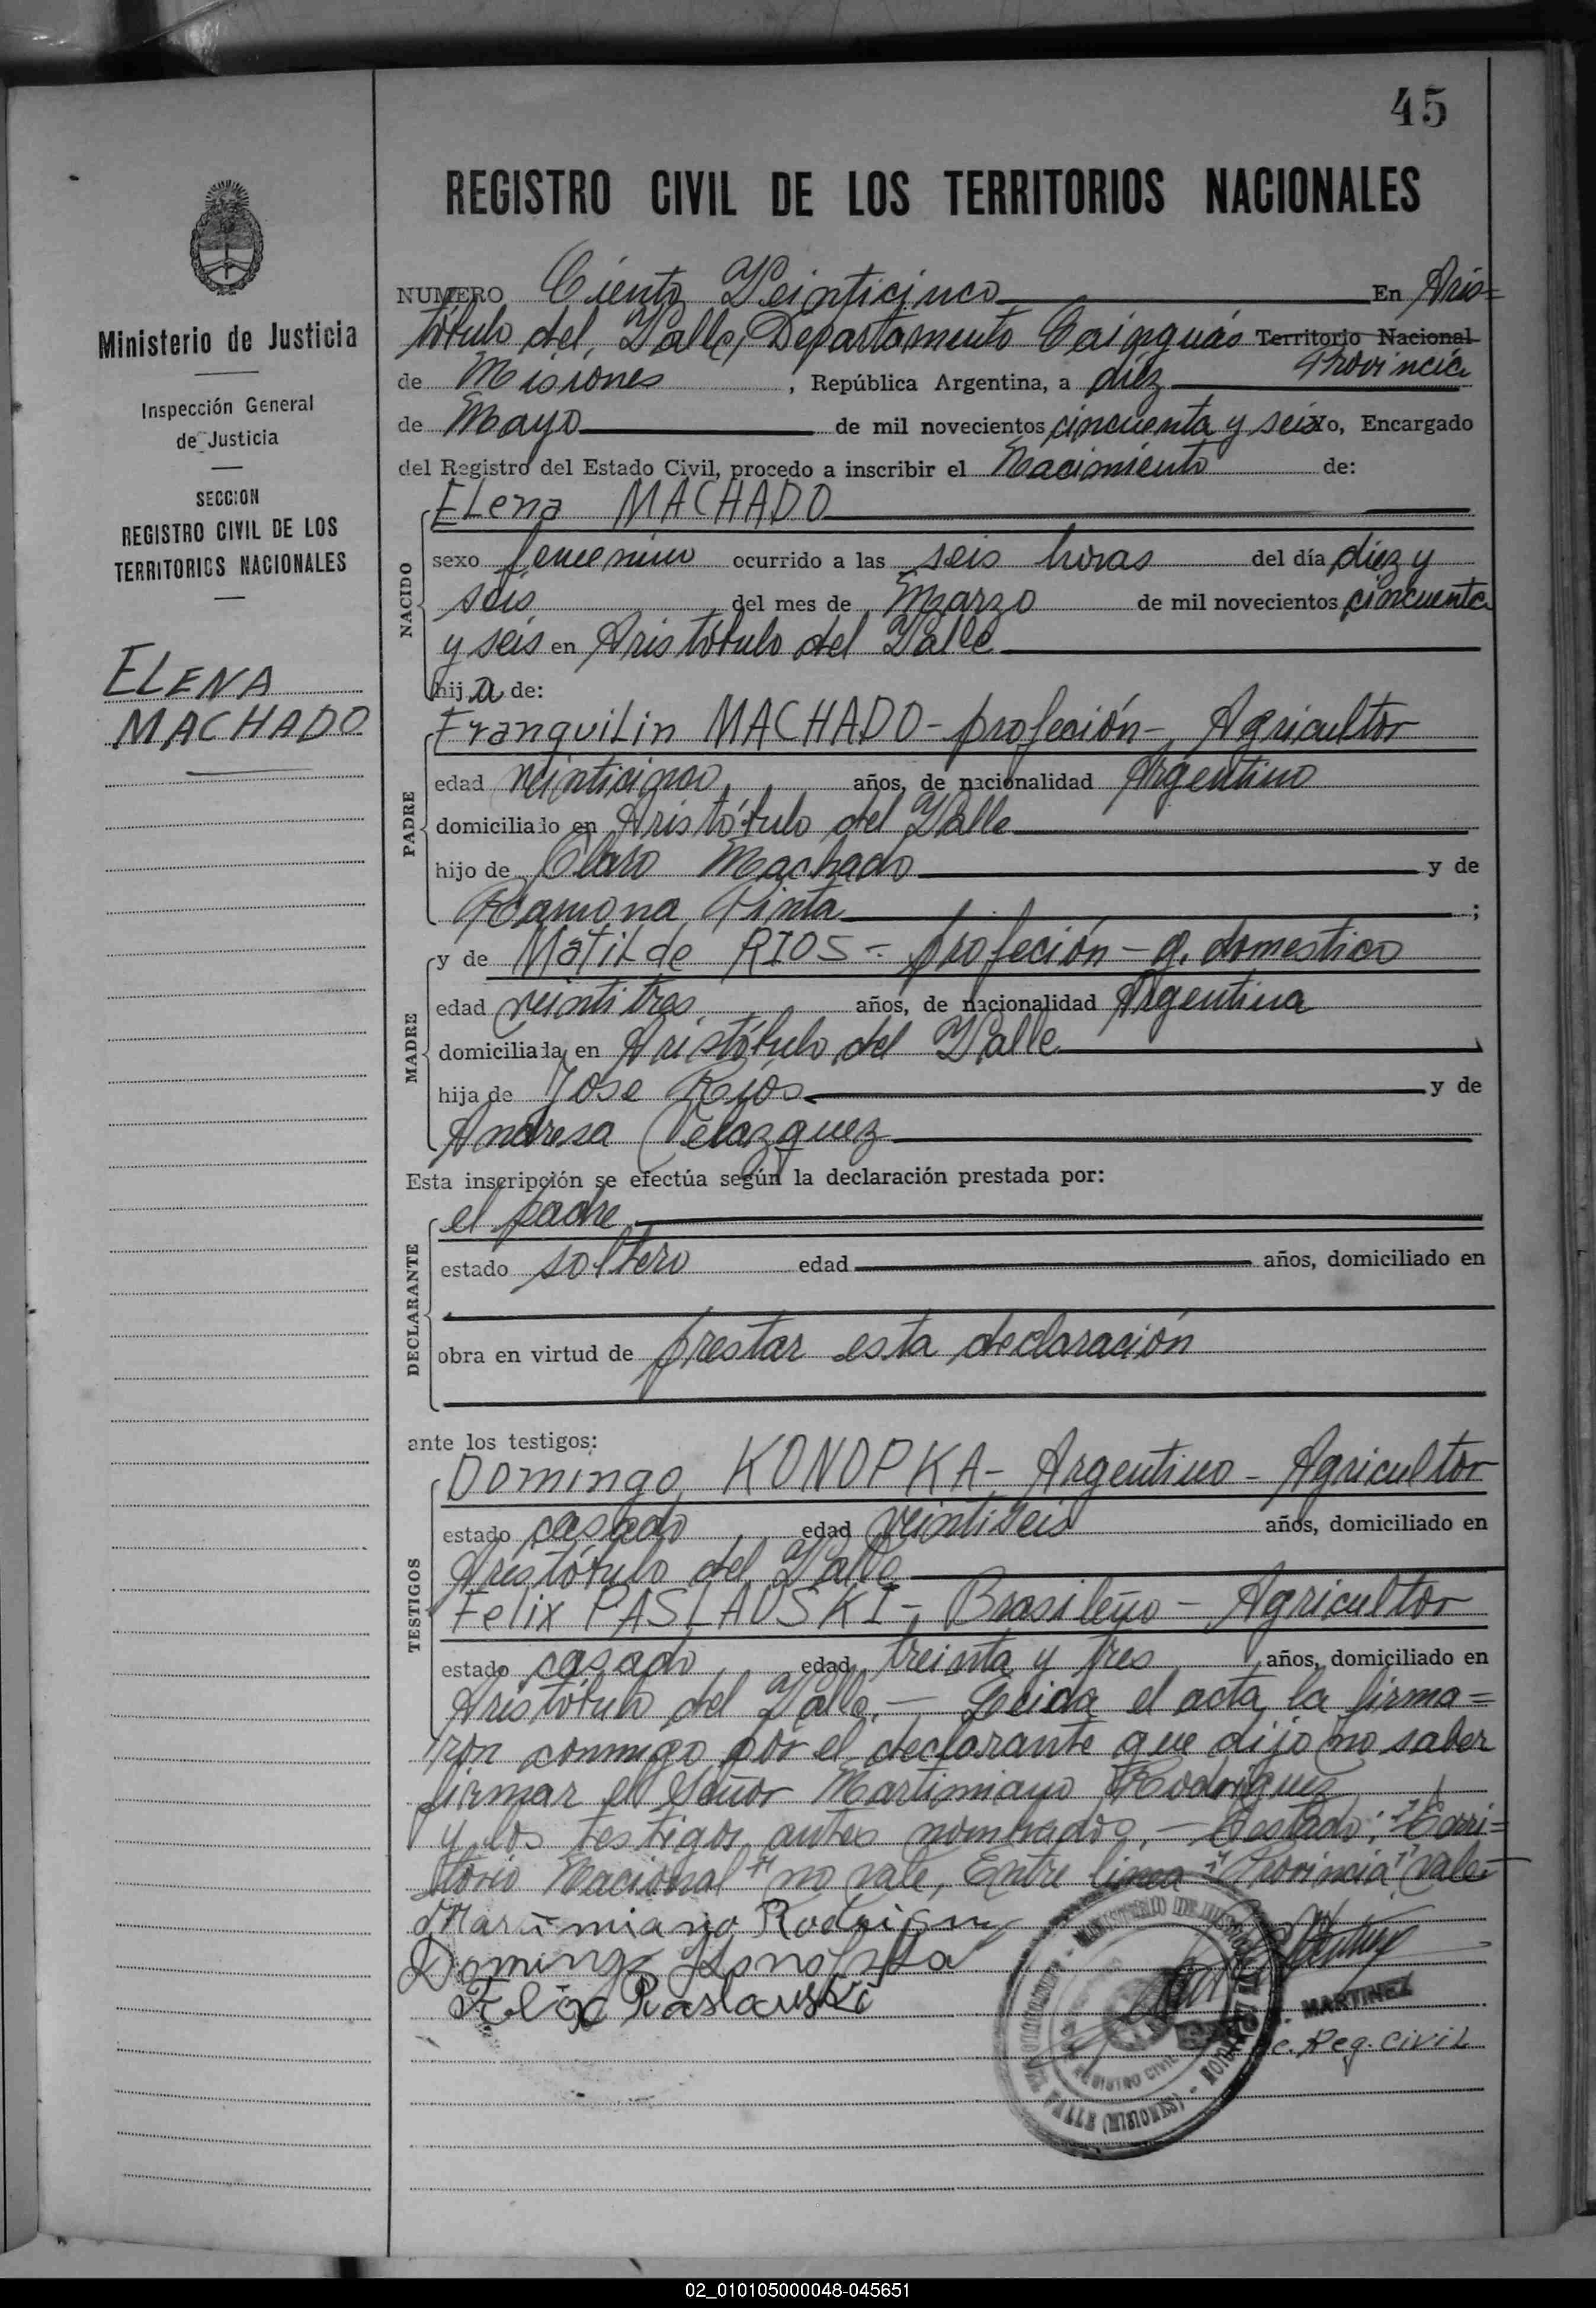 45
REGISTRO CIVIL DE LOS TERRITORIOS NACIONALES
Ministerio de Justicia
Inspección General
de Justicia
SECCION
REGISTRO CIVIL DE LOS
TERRITORIOS NACIONALES
ELENA
MACHADO
NUMERO Ciento Veinticinco En Aris=
tóbulo del Valle, Departamento Cainguás Territorio Nacional
Provincia
de Misiones, República Argentina, a diéz
de Mayo de mil novecientos cincuenta y seis yo, Encargado
del Registro del Estado Civil, procedo a inscribir el Nacimiento de:
NACIDO
Elena MACHADO
sexo femenino ocurrido a las seis horas del día diez y
seis del mes de Marzo de mil novecientos cincuenta
y seis en Aristóbulo del Valle
hija de:
PADRE
Franquilin MACHADO - profeción - Agricultor
edad veinticinco años, de nacionalidad Argentino
domiciliado en Aristóbulo del Valle
hijo de Claro Machado y de
Ramona Pinta;
MADRE
y de Matilde RIOS - profeción - q. domestico
edad veintitres años, de nacionalidad Argentina
domiciliada en Aristóbulo del Valle
hija de Jose Rios y de
Andresa Velazquez
Esta inscripción se efectúa según la declaración prestada por:
DECLARANTE
el padre
estado soltero edad años, domiciliado en
obra en virtud de prestar esta declaración
ante los testigos:
TESTIGOS
Domingo KONOPKA - Argentino - Agricultor
estado casado edad veintiseis años, domiciliado en
Aristóbulo del Valle
Felix PASLAUSKI - Brasileño - Agricultor
estado casado edad treinta y tres años, domiciliado en
Aristóbulo del Valle. - Leida el acta, la firma=
ron conmigo por el declarante que dijo no saber
firmar el Señor Martimiano Rodriguez
y los testigos antes nombrados. - Testado: "Terri=
torio Nacional" no vale, Entre linea "Provincia" vale-
Martimiano Rodriguez
Domingo Konopka
Felix Paslauski
MARTINEZ
c. Reg. Civil
02_010105000048-045651